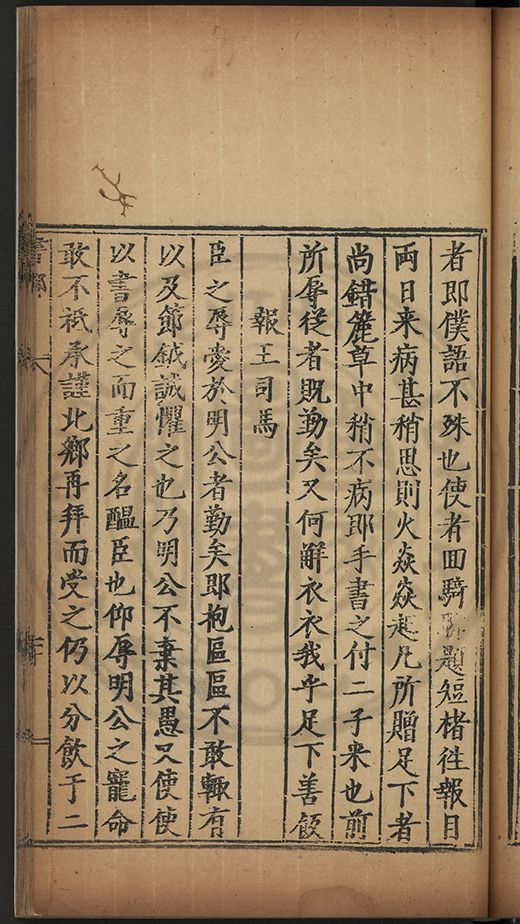 者即僕語不殊也使者回騎題短楮往報日
兩日来病甚稍思則火焱焱起凡所贈足下者
尚錯簏草中稍不病即手書之付二子来也前
所辱従者既勤矣又何解衣衣我乎足下善飯
報王司馬
臣之辱愛於明公者勤矣即抱區區不敢輙有
以及節鉞誠懼之也乃明公不棄其愚又使使
以書辱之而重之名醞臣也仰辱明公之寵命
敢不祇承謹北鄉再拜而受之仍以分飲于二